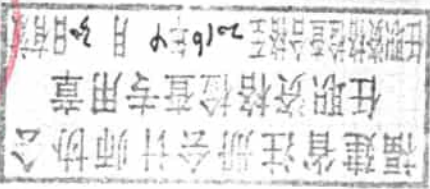 福建省注册会计师协会
任职资格检查专用章
任职资格检查合格至2016年4月30日有